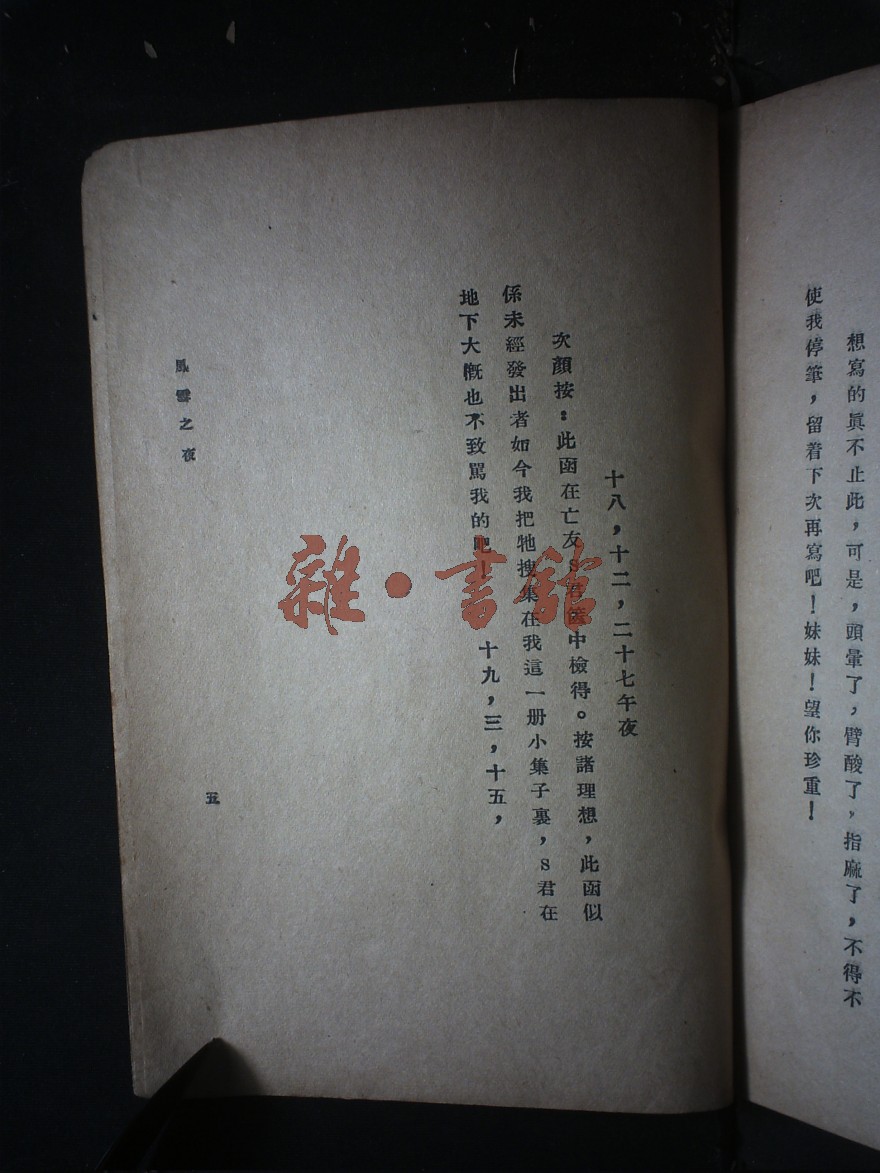 想寫的眞不止此，可是，頭暈了，臂酸了，指麻了，不得不
使我停筆，留着下次再寫吧！妹妹！望你珍重！
十八，十二，二十七午夜
次顏按：此函在亡友S君篋中檢得。按諸理想，此函似
係未經發出者如今我把牠搜集在我這一册小集子裏，S君在
地下大槪也不致罵我的吧！十九，三，十五，
風雪之夜
五
雜·書館